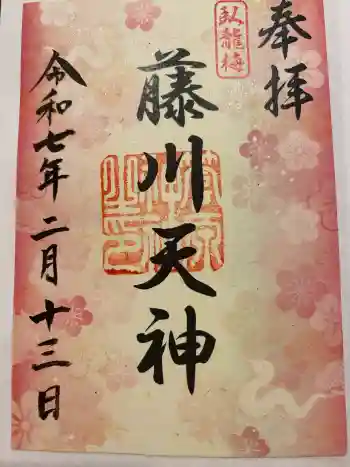 奉拝
臥龍梅
藤川天神
令和七年二月十三日